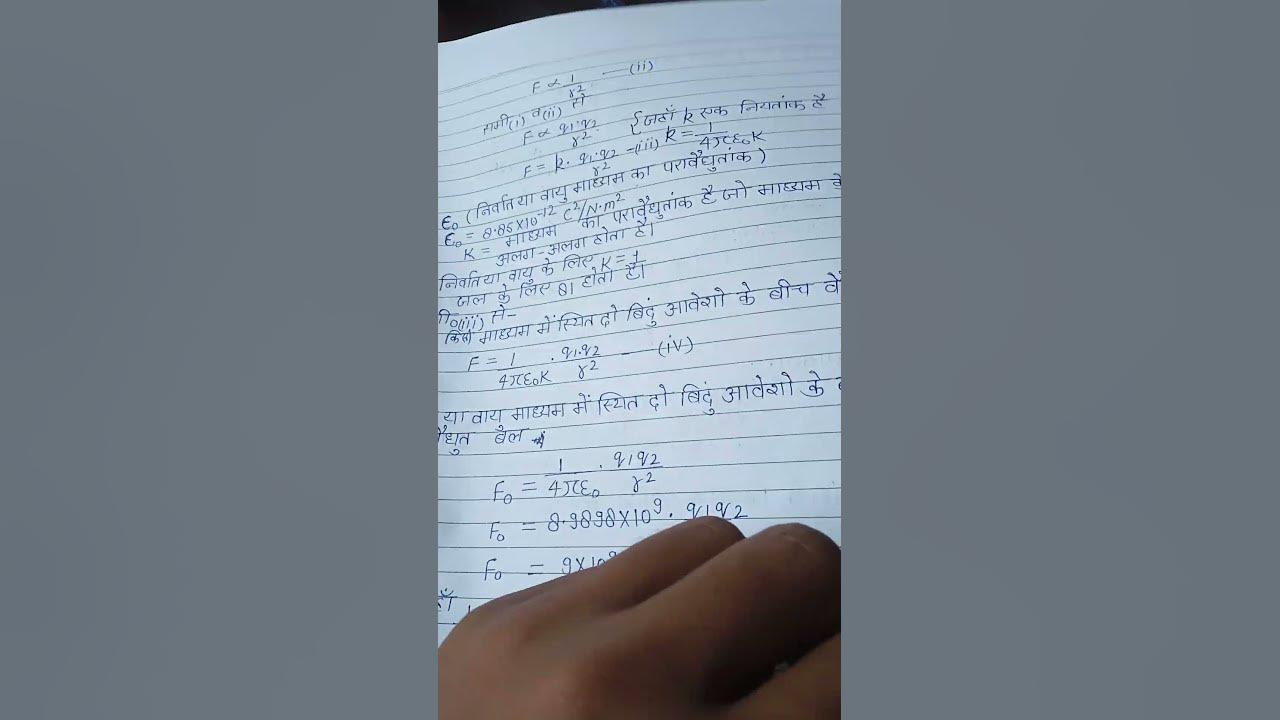 F ∝ 1/r² —(ii)
समी(i) व(ii) से
F ∝ q₁.q₂/r² {जहाँ k एक नियतांक है
F = k. q₁.q₂/r² —(iii) k = 1/4πε₀K
ε₀ (निर्वात या वायु माध्यम का परावैधुतांक)
ε₀ = 8.85X10⁻¹² C²/N.m²
K = माध्यम का परावैधुतांक है जो माध्यम के
अलग-अलग होता है।
निर्वात या वायु के लिए K = 1
जल के लिए 81 होता है।
(iii) से-
किसी माध्यम में स्थित दो बिदुं आवेशो के बीच
F = 1/4πε₀K . q₁.q₂/r² — (iv)
या वायु माध्यम में स्थित दो बिदुं आवेशो के
बल
F₀ = 1/4πε₀ . q₁q₂/r²
F₀ = 8.9898X10⁹. q₁q₂
F₀ = 9X10